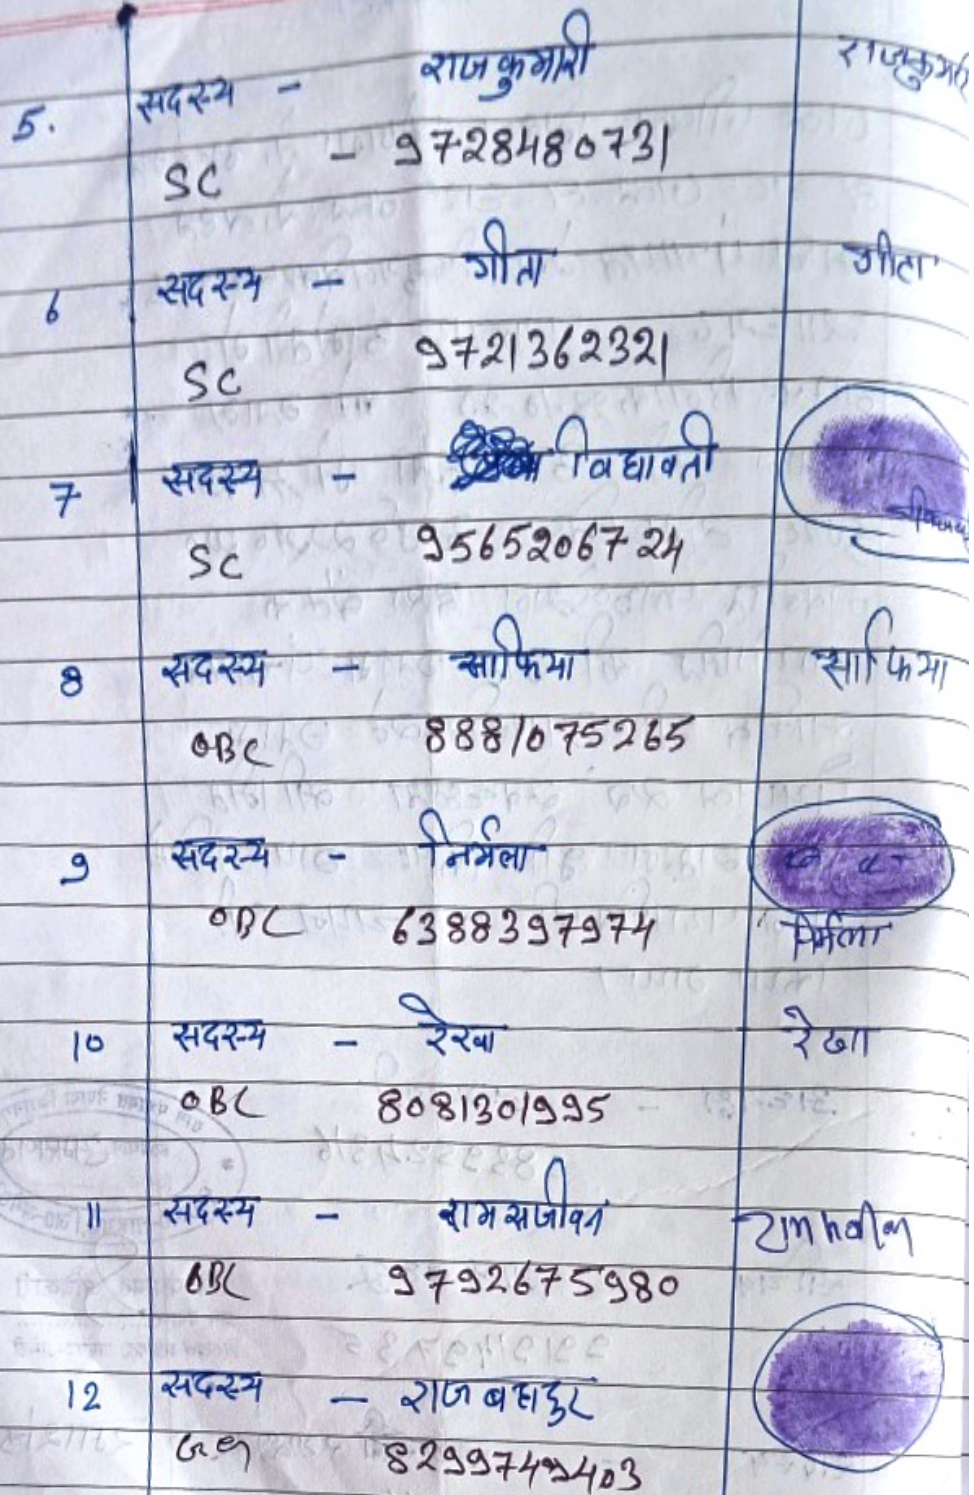 5. सदस्य - राजकुमारी राजकुमारी
SC - 9728480731
6 सदस्य - गीता गीता
SC 9721362321
7 सदस्य - विद्यावती
SC 9565206724
8 सदस्य - साफिया साफिया
OBC 8881075265
9 सदस्य - निर्मला
OBC 6388397974 निर्मला
10 सदस्य - रेखा रेखा
OBC 8081301995
11 सदस्य - रामसजीवन
OBC 9792675980
12 सदस्य - राजबहादुर
8299749403